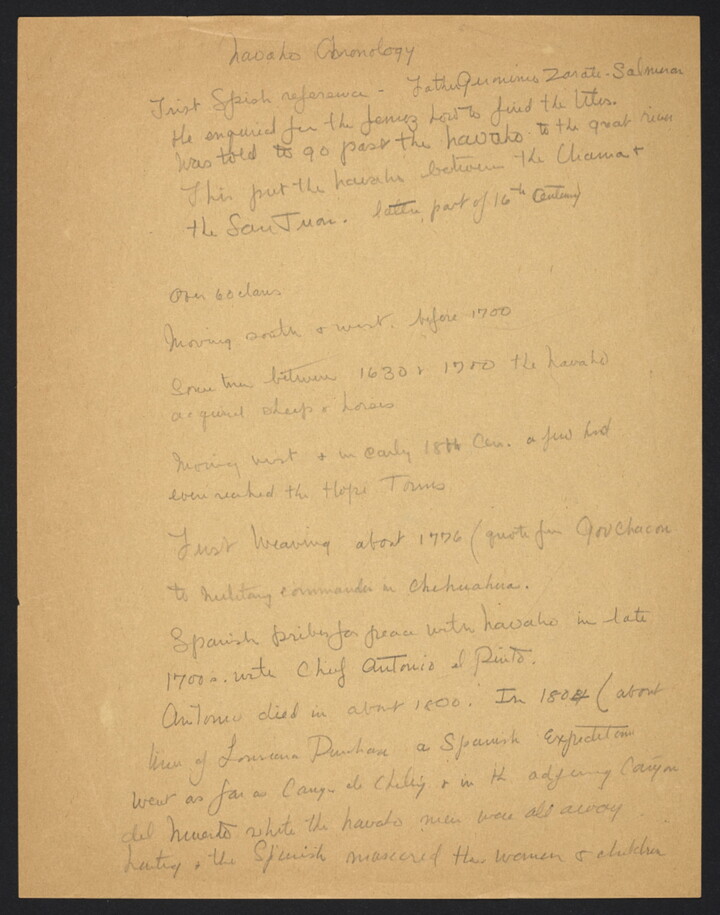 Navaho Chronology
First Spish reference - Father Geronimo Zarate-Salmeron
He enquired for the Jemez how to find the Utes.
Was told to go past the Navaho to the great river
This put the Navaho between the Chama +
the San Juan. latter part of 16th Century
Over 60 clans
Moving south & west. before 1700
Some time between 1630 & 1700 the Navaho
acquired sheep & horses
Moving west & in early 18th Cen. a few had
even reached the Hopi Towns
First Weaving about 1776 (quote fm Gov Chacon
to military commander in Chehuahua.
Spanish bribes for peace with Navaho in late
1700s. with Chief Antonio el Pinto.
Antonio died in about 1800. In 1804 (about
time of Louisiana Purchase a Spanish Expedition
went as far as Canyo de Chelly & in the adjoining Canyon
del Muerto while the Navaho men were all away
hunting & the Spanish mascared the women & children